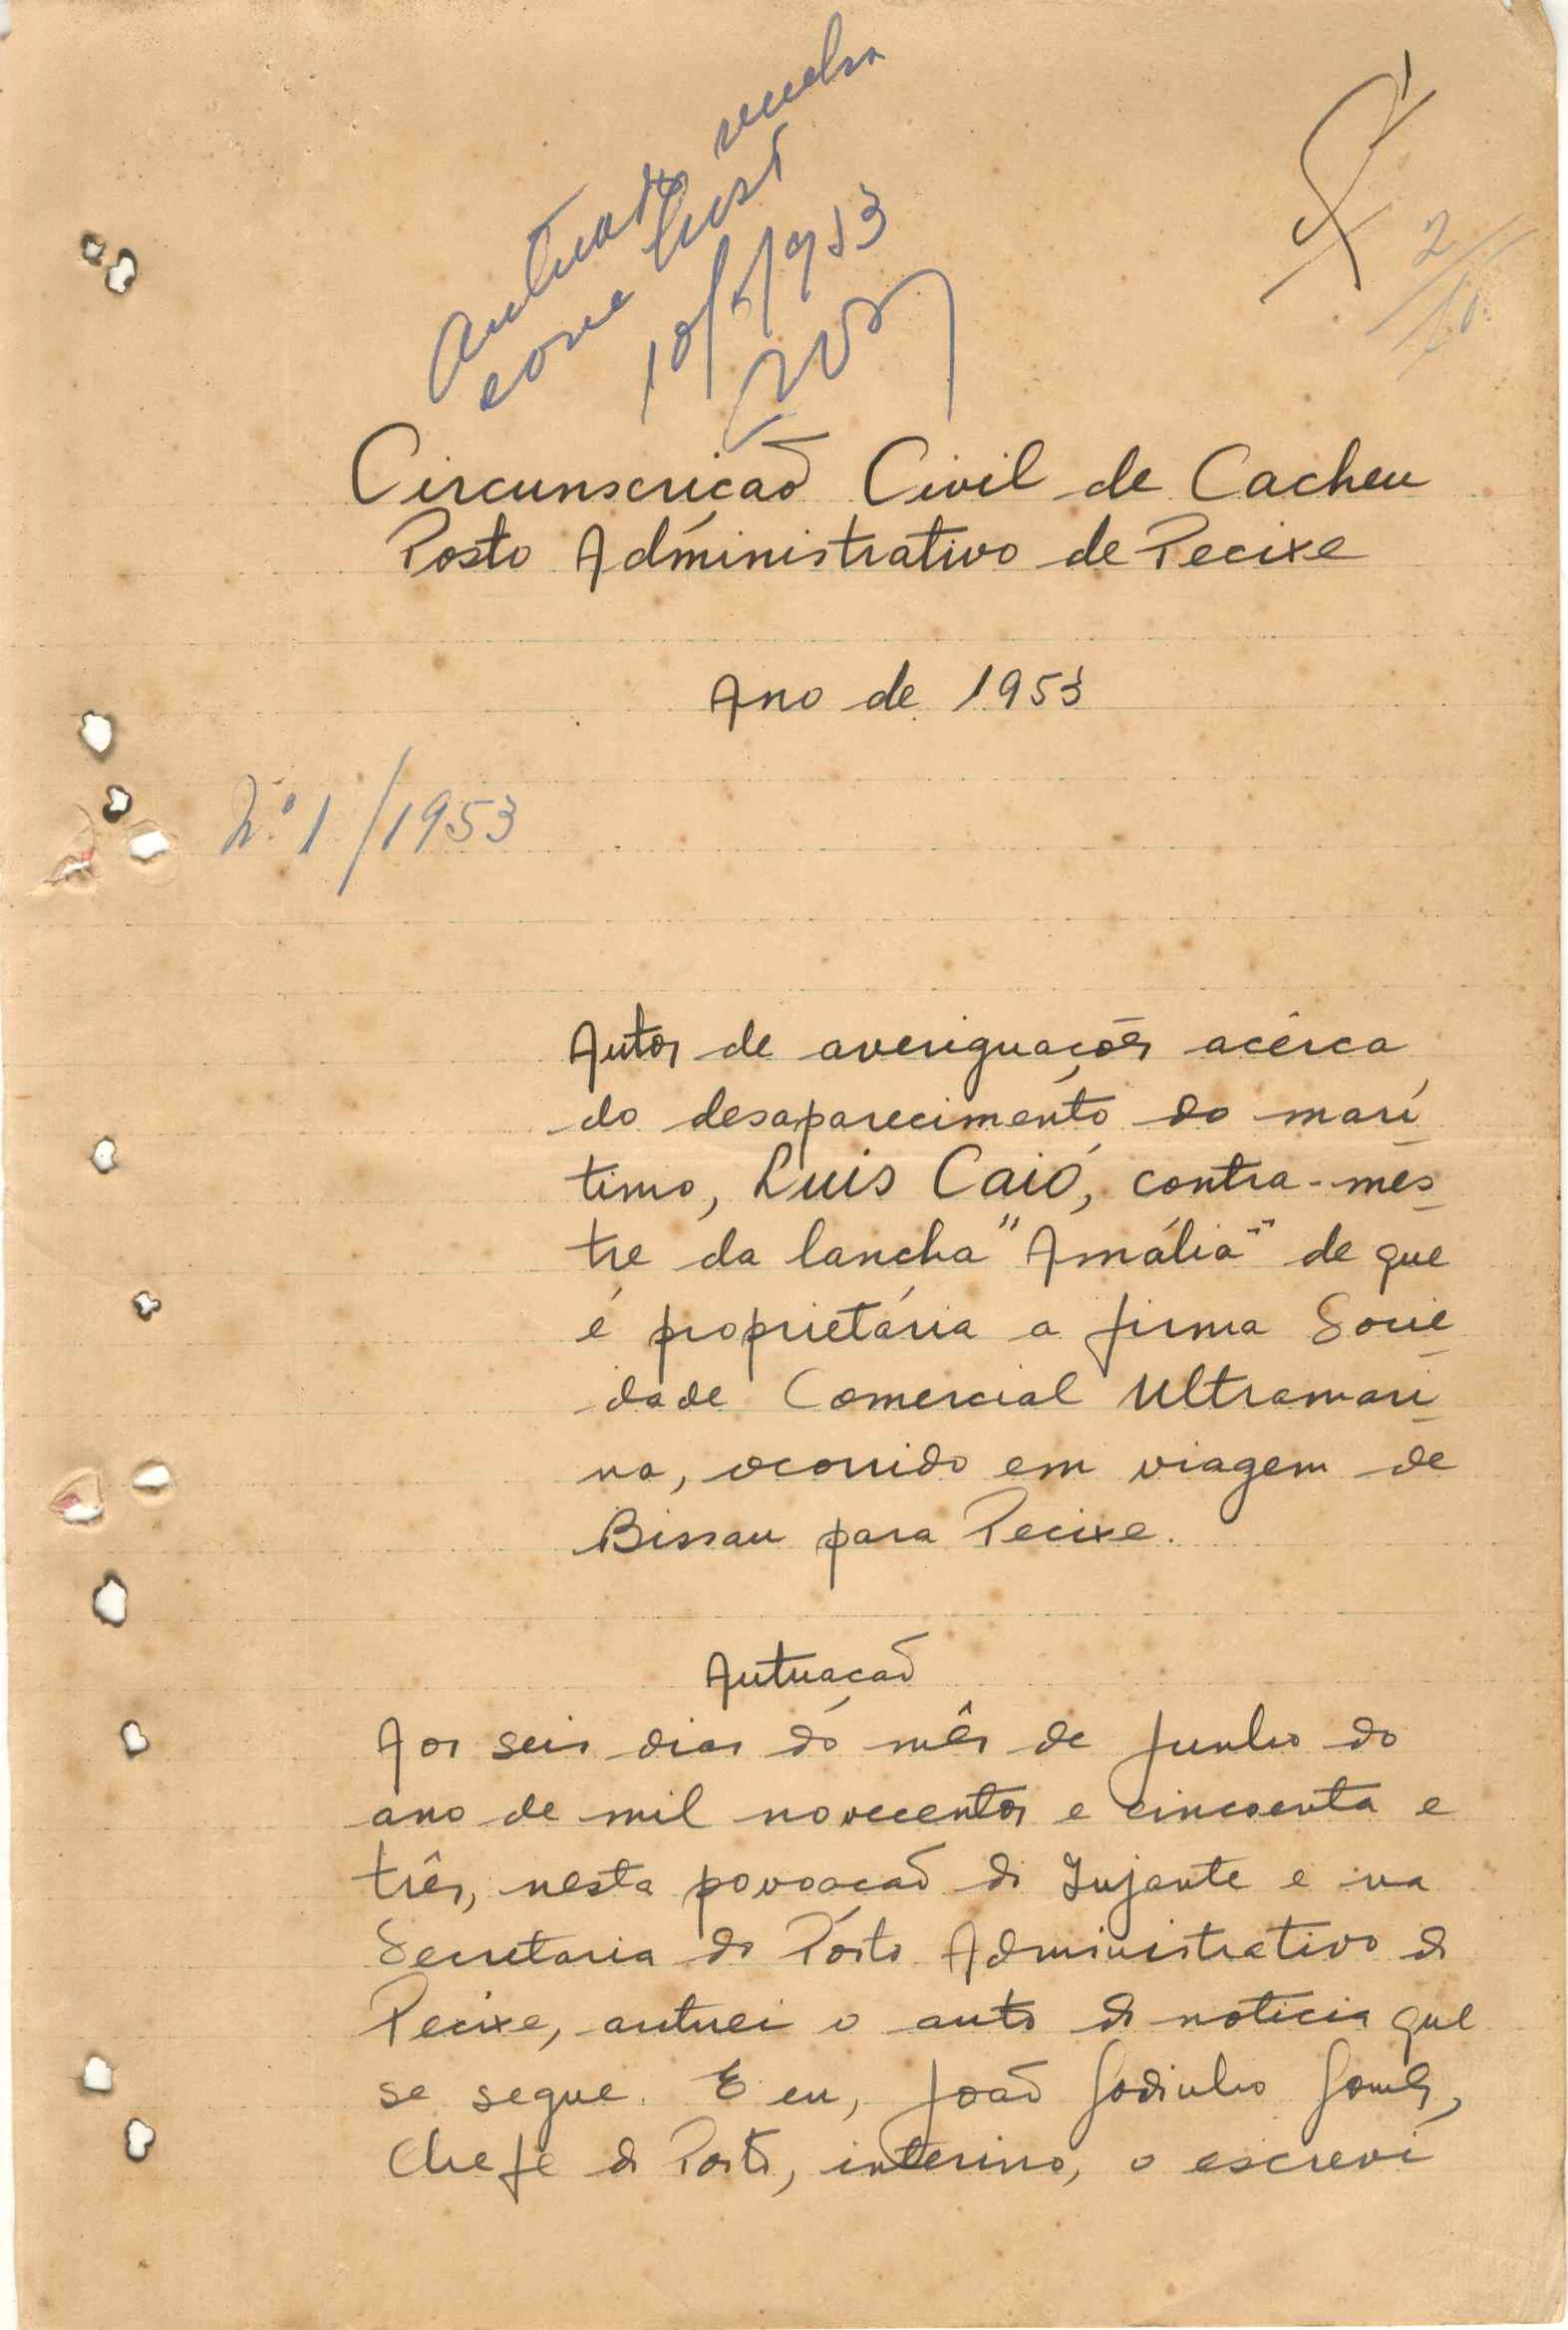 autuado venha
10/6/953
2
Circunscrição Civil de Cacheu
Posto Administrativo de Pecixe
Ano de 1953
N.º 1/1953
Autos de averiguações acêrca
do desaparecimento do marí
timo, Luis Caió, contra-mes
tre da lancha "Amália" de que
é proprietária a firma Socie
dade Comercial Ultramari
na, ocorrido em viagem de
Bissau para Pecixe.
Autuação
Aos seis dias do mês de Junho do
ano de mil novecentos e cincoenta e
três, nesta povoação de Jujante e na
Secretaria do Pôsto Administrativo de
Pecixe, autuei o auto de noticia que
se segue. E eu, João Godinho Gomes,
Chefe de Posto, interino, o escreví